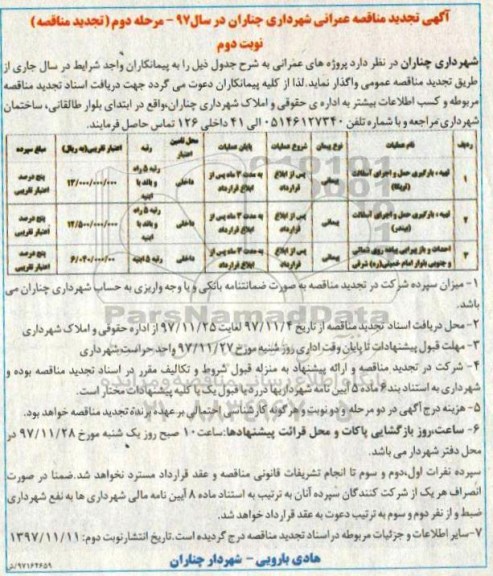 آگهی تجدید مناقصه عمرانی شهرداری چناران در سال۹۷ - مرحله دوم (تجدید مناقصه)
نوبت دوم
شهرداری چناران در نظر دارد پروژه های عمرانی به شرح جدول ذیل را به پیمانکاران واجد شرایط در سال جاری از
طریق تجدید مناقصه عمومی واگذار نماید.لذا از کلیه پیمانکاران دعوت می گردد جهت دریافت اسناد تجدید مناقصه
مربوطه و کسب اطلاعات بیشتر به اداره ی حقوقی و املاک شهرداری چناران،واقع در ابتدای بلوار طالقانی، ساختمان
شهرداری مراجعه و با شماره تلفن ۰۵۱۴۶۱۲۷۳۴۰ الی ۴۱ داخلی ۱۲۶ تماس حاصل فرمایند.
ردیف نام عملیات نوع پیمان شروع عملیات پایان عملیات محل تامین اعتبار رتبه اعتبار تقریبی(به ریال) مبلغ سپرده
۱ تهیه ، بارگیری حمل و اجرای آسفالت (توپکا) پیمانی پس از ابلاغ قرارداد به مدت ۳ ماه پس از ابلاغ قرارداد داخلی رتبه ۵ راه و باند یا ابنیه ۱۳/۰۰۰/۰۰۰/۰۰۰ پنج درصد اعتبار تقریبی
۲ تهیه ، بارگیری حمل و اجرای آسفالت (بیندر) پیمانی پس از ابلاغ قرارداد به مدت ۳ ماه پس از ابلاغ قرارداد داخلی رتبه ۵ راه و باند یا ابنیه ۱۴/۵۰۰/۰۰۰/۰۰۰ پنج درصد اعتبار تقریبی
۳ احداث و باز پیرایی پیاده روی شمالی و جنوبی بلوار امام خمینی(ره) شرقی پیمانی پس از ابلاغ قرارداد به مدت ۳ ماه پس از ابلاغ قرارداد داخلی رتبه ۵ ابنیه ۶/۰۴۰/۰۰۰/۰۰۰ پنج درصد اعتبار تقریبی
۱- میزان سپرده شرکت در تجدید مناقصه به صورت ضمانتنامه بانکی و یا وجه واریزی به حساب شهرداری چناران می
باشد.
۲- محل دریافت اسناد تجدید مناقصه از تاریخ ۹۷/۱۱/۴ لغایت ۹۷/۱۱/۲۵ از اداره حقوقی و املاک شهرداری
۳- مهلت قبول پیشنهادات تا پایان وقت اداری روز شنبه مورخ ۹۷/۱۱/۲۷ واحد حراست شهرداری
۴- شرکت در تجدید مناقصه و ارائه پیشنهاد به منزله قبول شروط و تکالیف مقرر در اسناد تجدید مناقصه بوده و
شهرداری به استناد بند ۶ ماده ۵ آیین نامه شهرداریها در رد یا قبول یک یا کلیه پیشنهادات مختار است.
۵- هزینه درج آگهی در دو مرحله و دو نوبت و هر گونه کارشناسی احتمالی بر عهده برنده تجدید مناقصه خواهد بود.
۶- ساعت،روز بازگشایی پاکات و محل قرائت پیشنهادها:ساعت ۱۰ صبح روز یک شنبه مورخ ۹۷/۱۱/۲۸ در
محل دفتر شهردار می باشد.
سپرده نفرات اول،دوم و سوم تا انجام تشریفات قانونی مناقصه و عقد قرارداد مسترد نخواهد شد.ضمنا در صورت
انصراف هر یک از شرکت کنندگان سپرده آنان به ترتیب به استناد ماده ۸ آیین نامه مالی شهرداری ها به نفع شهرداری
ضبط و از نفر دوم و سوم به ترتیب دعوت به عقد قرارداد خواهد شد.
۷-سایر اطلاعات و جزئیات مربوطه در اسناد تجدید مناقصه درج گردیده است.تاریخ انتشار نوبت دوم: ۱۳۹۷/۱۱/۱۱
هادی بارویی- شهردار چناران
۹۷۱۶۴۶۵۹/ش
ParsNamadData